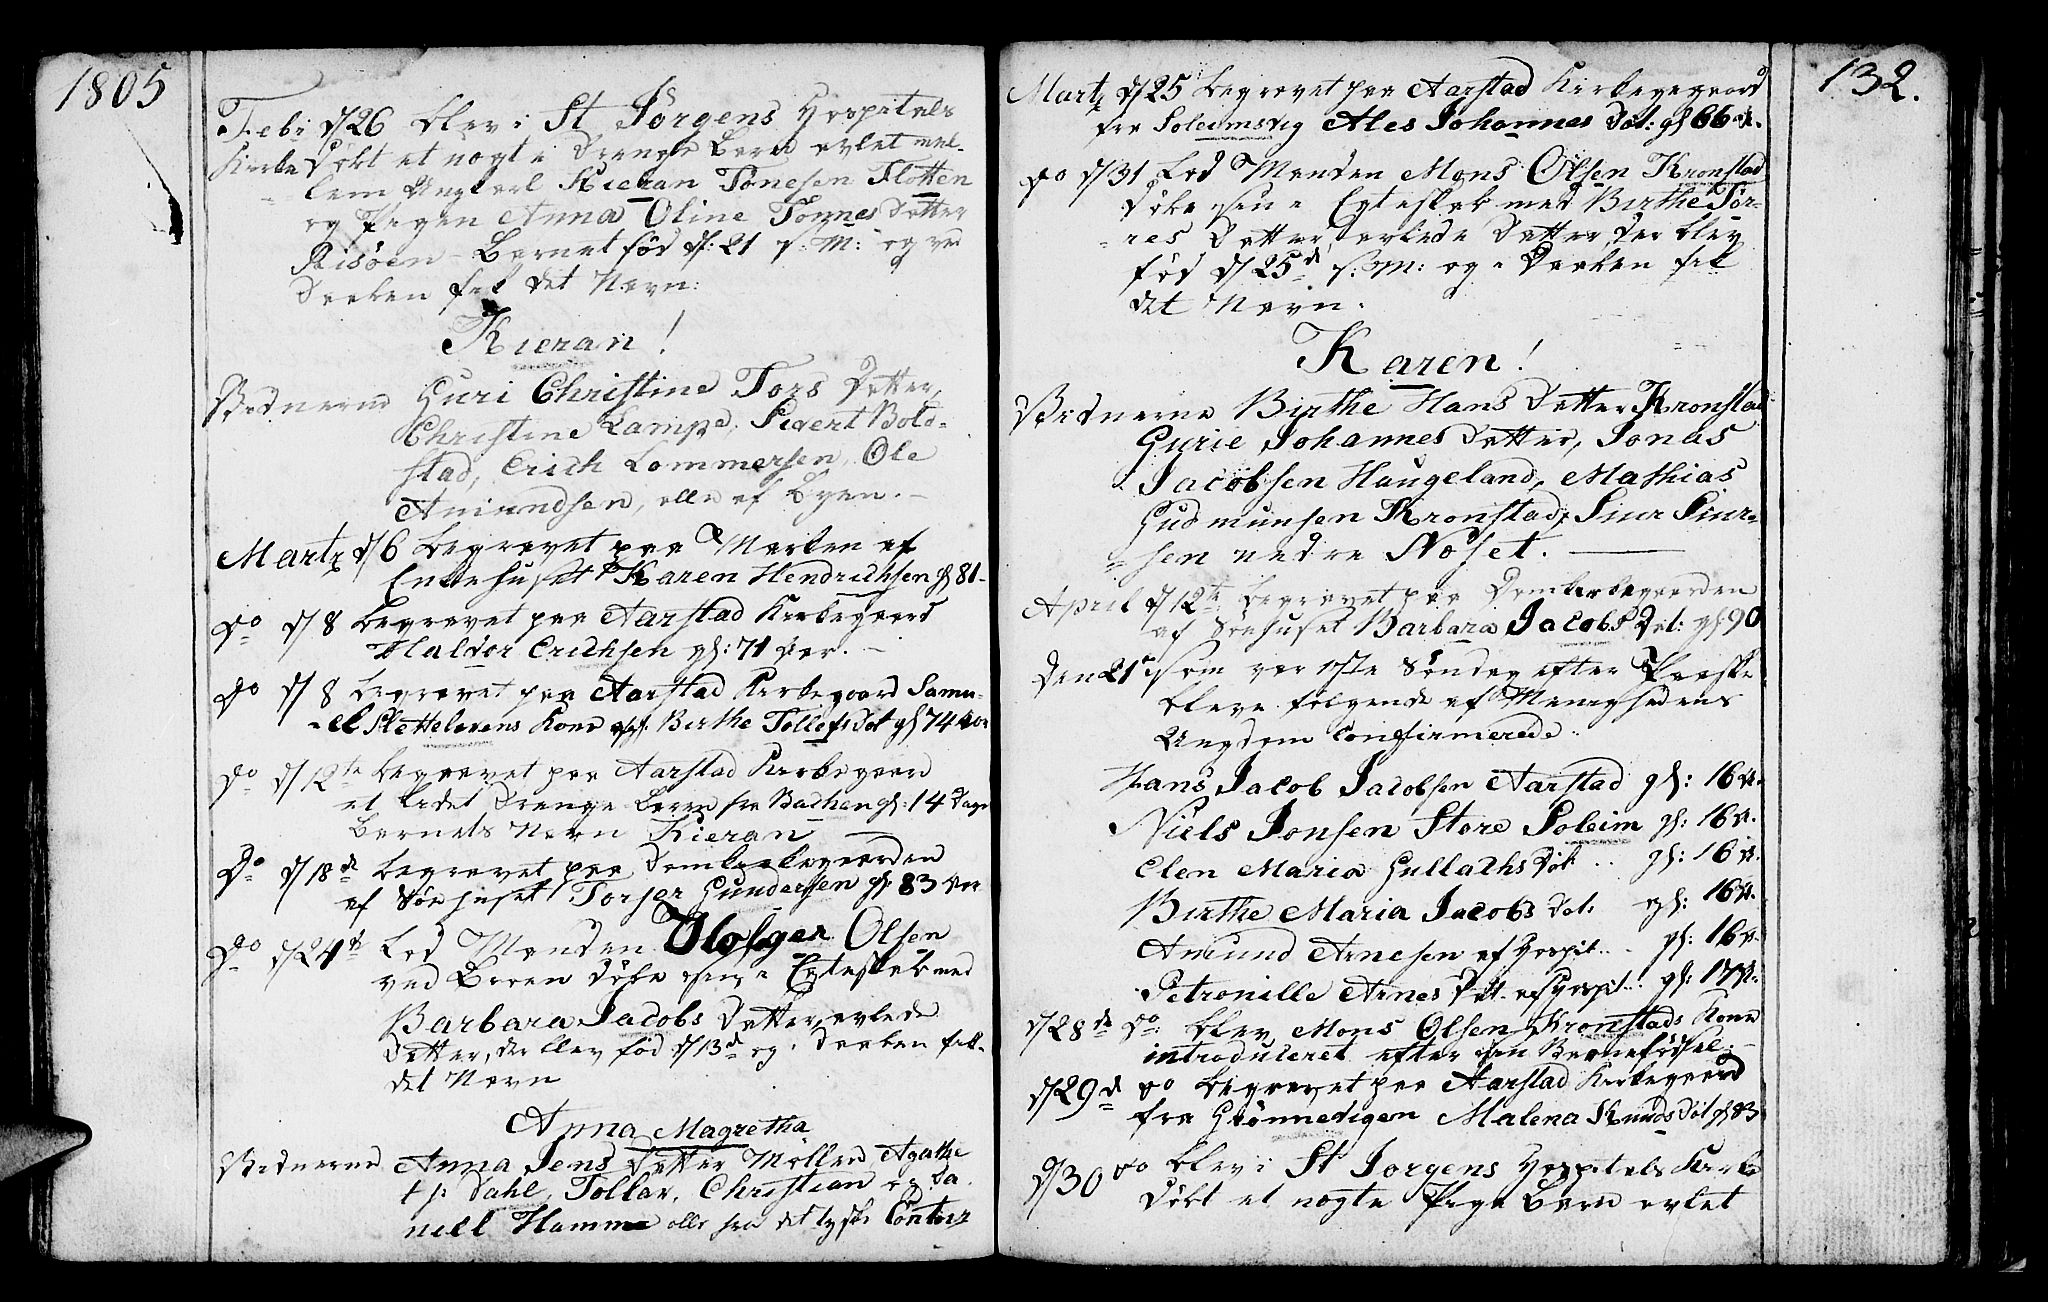 1805
Feb: d/26 blev i St Jörgens Hospitals
Kirke Döbt et uægte Drenge Barn avlet mel-
lem Ungkarl Kieran Tönesen Flotten
og Pigen Anna Oline Tönnes Datter
Risöen - Barnet föd d: 21 s: M: og ved
Daaben fik det Navn:
Kieran!
Vidnerne Guri Christine Tors Datter,
Christine Lampe, Sivert Bold-
stad, Erich Lommersen, Ole
Amundsen, alle af Byen. -
Martz d/6 begravet paa Marken af
Enkehuset Karen Hendrichsen gl 81-
Do d/8 begravet paa Aarstad Kirkegaard
Haldor Erichsen gl: 71 Aar. -
Do d/8 begravet paa Aarstad Kirkegaard Samu-
-el Slettelevens Kone Birthe Tollefs Dat gl 74 Aar
Do d/12te begravet paa Aarstad Kirkegaard
et Drenge Barn fra Bachen gl: 14 Dage
Barnets Navn Kieran
Do d/18de begravet paa Domkirkegaarden
af Söehuset Torger Gundersen gl: 83 Aar
Do d/24de Lod Manden Holger Olsen
ved Döbe sin i Egteskab med
Barbara Jacobs Datter avlede
Datter, der blev föd d/13de og i Daaben fik
det Navn
Anna Magretha
Vidnerne Anna Jens Datter Möller, Agathe
Dahl, Tollar, Christian og Da
niell Hamme alle fra det tydske Contoir
132.
Martz d/25 begravet paa Aarstad Kirkegaard
fra Soleimsvig Ales Johannes Dat: gl 66 A.
Do d/31 Lod Manden Mons Olsen Kronstad
Döbe sin i Egteskab med Birthe Tör-
res Datter, avlede Datter, der blev
föd d/25de s: M: og i Daaben fik
det Navn.
Karen!
Vidnerne Birthe Hans Datter Kronstad
Gurie Johannes Datter, Jonas
Jacobsen Haugeland, Mathias
Gudmunsen Kronstad, Siur Siur-
sen nedre Nöset.
April d/12te begravet paa Domkirkegaarden
af Söehuset Barbara Jacobs Dat: gl: 90
Den 21 som var 1ste Söndag efter Paaske
bleve fölgende af Menighedens
Ungdom Confirmerede.
Hans Jacob Jacobsen Aarstad gl: 16 A.
Niels Jonsen Store Soleim gl: 16 A.
Elen Maria Gullachs Dat .. gl: 16 A.
Birthe Maria Jacobs Dat: gl: 16 A.
Amund Arnesen af Hospit... gl: 16 A.
Petronille Arnes Dat. af Hospit.. gl: 17 A.
d/28de do. blev Mons Olsen Kronstads Kone
introduceret efter sin Barnefödsel. -
d/29de do begravet paa Aarstad Kirkegaard
fra Grönnevigen Malena Knuds Dat gl 83
d/30 do blev i St Jorgens Hospitals Kirke
Döbt et uægte Pige Barn avlet